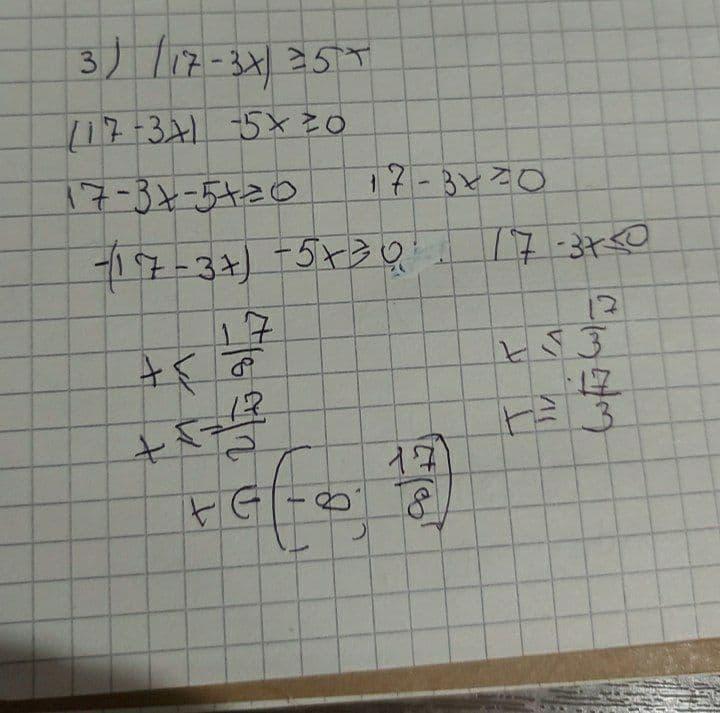 3) |17-3x| ≥5x
|17-3x| -5x≥0
17-3x-5x≥0 17-3x≥0
-(17-3x) -5x≥0 17-3x≤0
x≤ 17/8 x≤ 17/3
x≤-17/2 x≥ 17/3
x∈(-∞; 17/8)